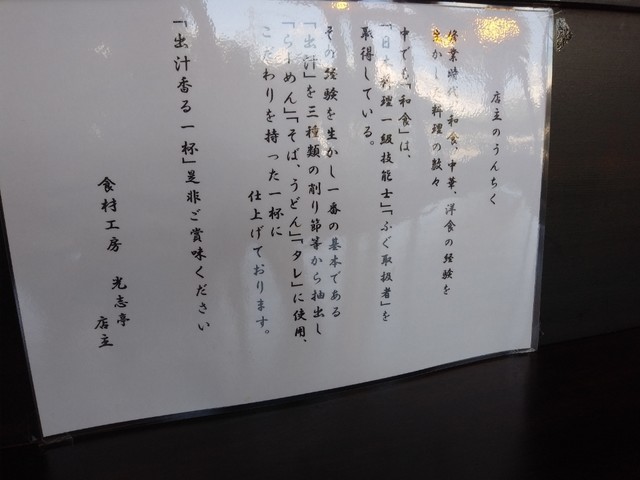 店主のうんちく
修業時代、和食、中華、洋食の経験を
生かした料理の数々
中でも「和食」は、
「日本料理一級技能士」「ふぐ取扱者」を
取得している。
その経験を生かし一番の基本である
「出汁」を三種類の削り節等から抽出し
「らーめん」「そば、うどん」「タレ」に使用、
こだわりを持った一杯に
仕上げております。
「出汁香る一杯」是非ご賞味ください
食材工房　光志亭
店主